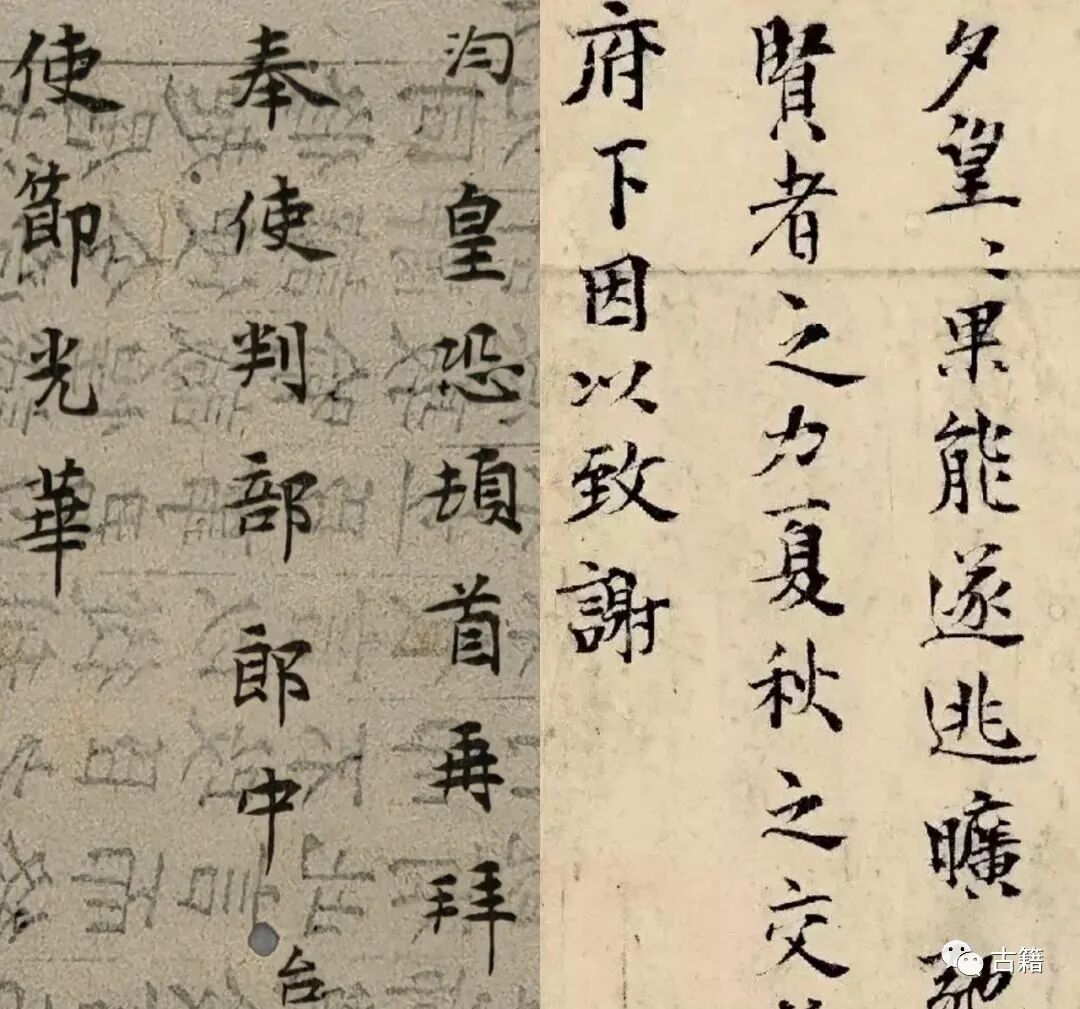 洵皇恐頓首再拜
奉使判部郎中台
使節光華
夕望〻果能遂逃曠
賢者之力夏秋之交
府下因以致謝
古籍